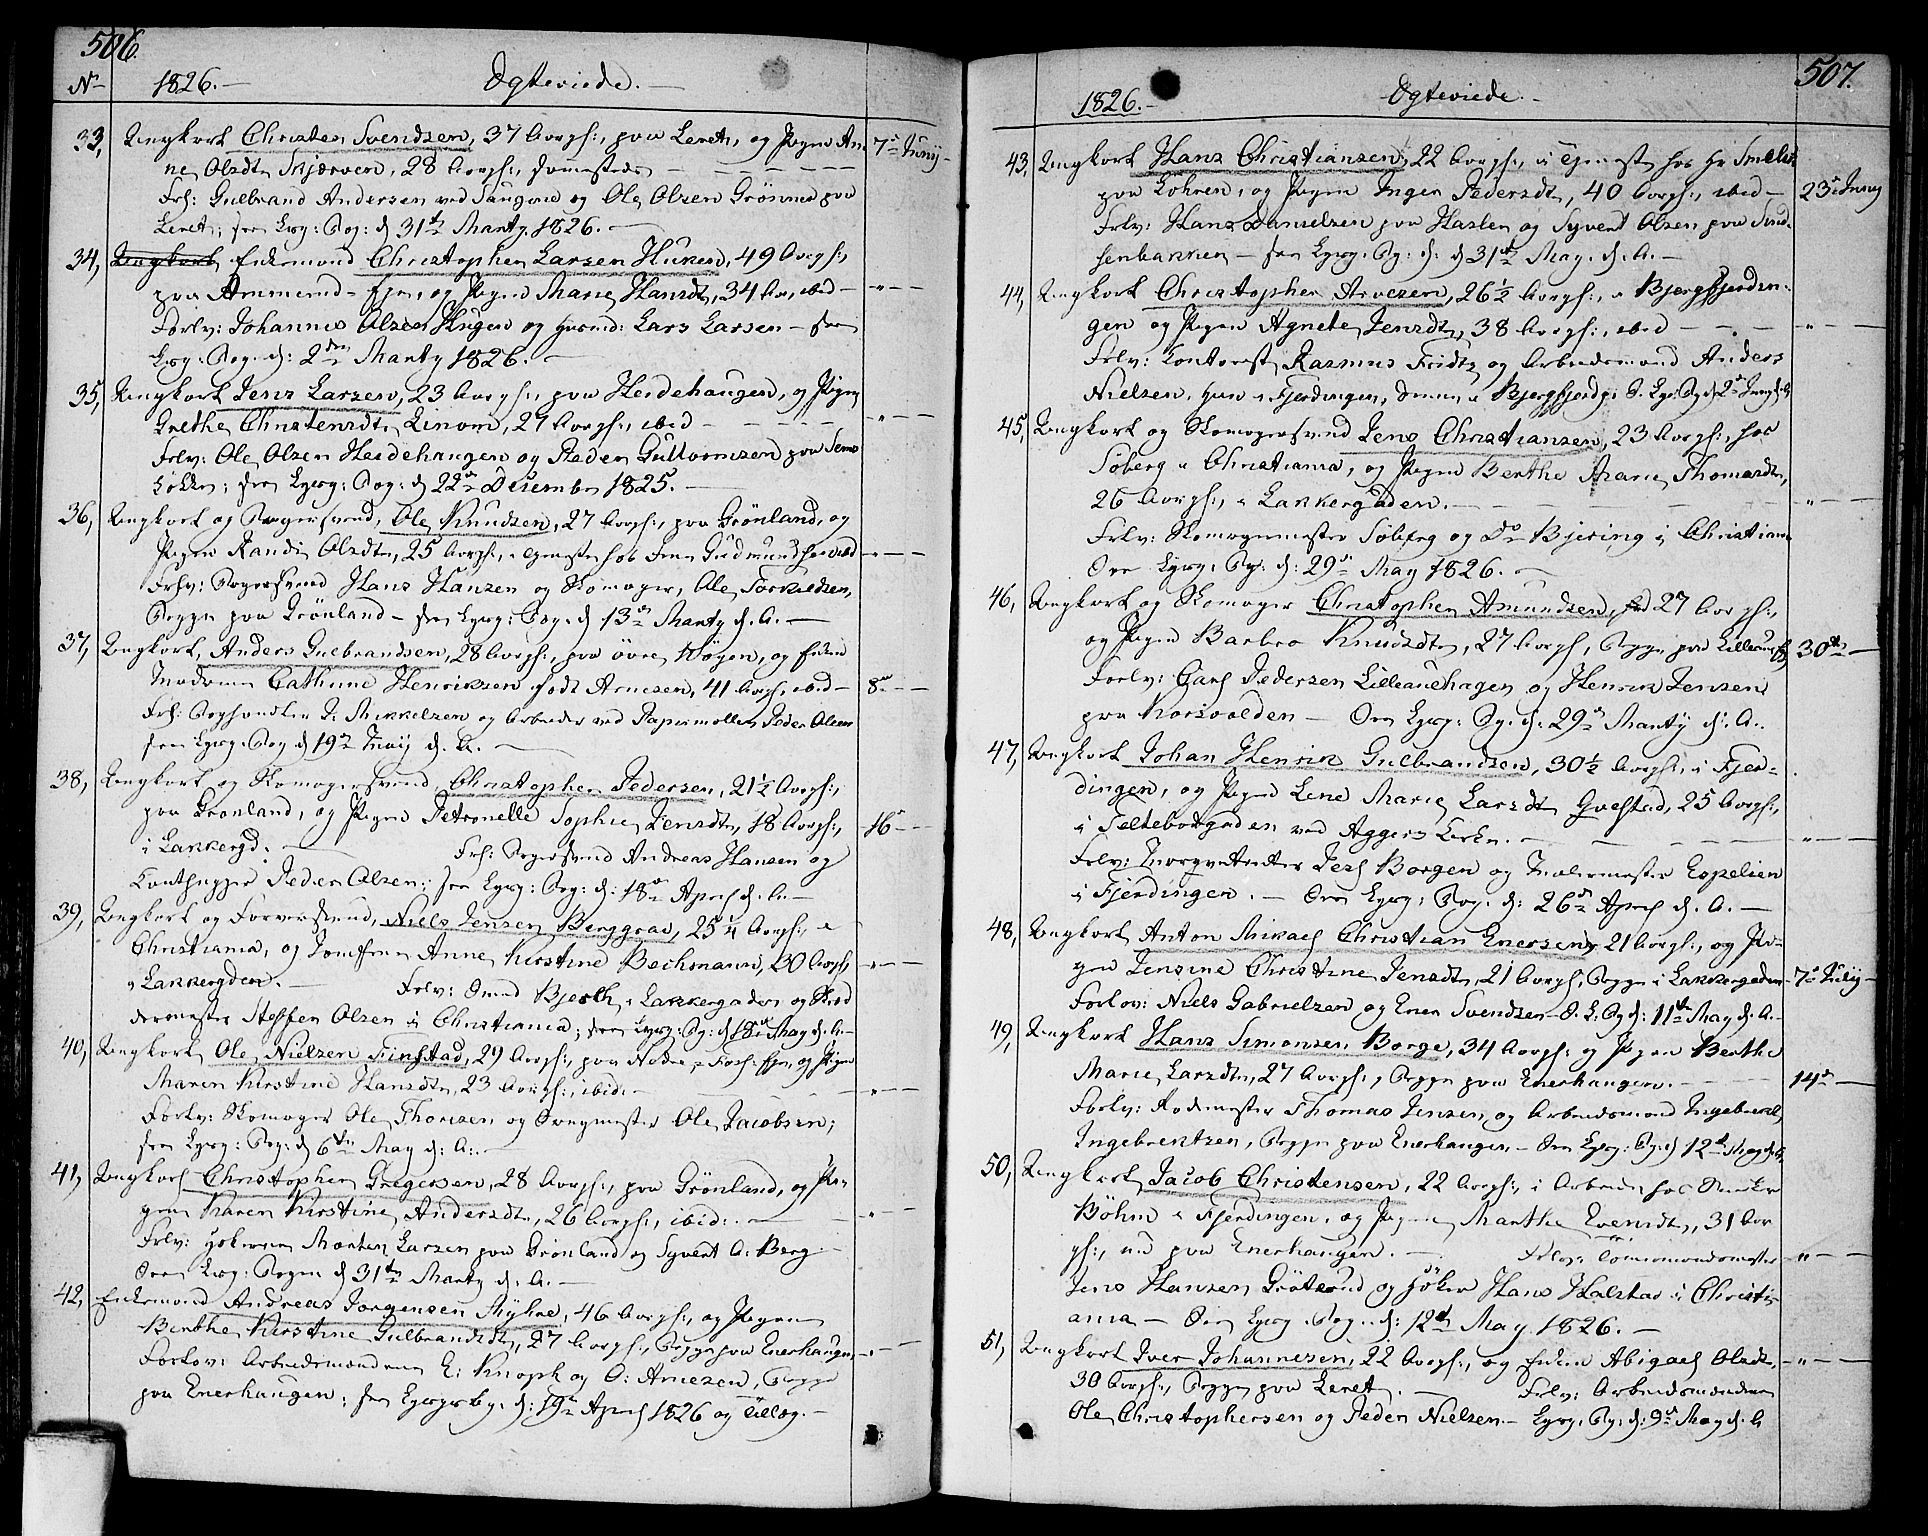 506.
No 1826.— Ægteviede.—
33, Ungkarl Christen Svendsen, 37 Aar gl:, paa Leret, og Pigen An- 7de Juny
ne Olsdt Skjærven, 28 Aar gl:,
Frl: Gulbrand Andersen ved Saugene og Ole Olsen Grönner paa
Leret; sees Lysg: Bog: d 31te Marty 1826.—
34, Ungkarl Enkemand Christopher Larsen Huken, 49 Aar gl:,
paa Ammerud-Ejer, og Pigen Marie Hansdt, 34 Aar, ibid — " —
Forlv: Johannes Olsen Hugen og Huusmd: Lars Larsen — sees
Lysg: Bog: d: 2den Marty 1826.—
35, Ungkarl Jens Larsen, 23 Aar gl:, paa Heidehaugen, og Pigen
Grethe Christensdt Linom, 27 Aar gl:, ibid — " —
Frlv: Ole Olsen Heidehaugen og Peder Guttormsen paa Sems
Lökken; sees Lysg: Bog: d 22de December 1825.—
36, Ungkarl og Bagersvend, Ole Knudsen, 27 Aar gl:, paa Grönland, og
Pigen Randi Olsdt, 25 Aar gl:, i Tjeneste hos Gudmund — " —
Frlv: Bagersvend Hans Hansen og Skomager, Ole Torkildsen,
Begge paa Grönland — sees Lysg: Bog: d 13de Marty d. A.—
37, Ungkarl, Anders Gulbrandsen, 28 Aar gl:, paa övre Vöyen, og Enken
Madame Cathrine Henriksen född Arnesen, 41 Aar gl, ibid — 8de —
Frl: Boghandler J: Mikkelsen og Arbeider ved Papirmöllen Peder Olsen
sees Lysg: Bog d 19de May d. A.—
38, Ungkarl og Skomagersvend Christopher Pedersen, 21½ Aar gl:,
paa Grönland, og Pigen Petronelle Sophie Jensdt, 18 Aar gl:, 16de —
i Lakkergd:— Frl: Bagersvend Andreas Hansen og
Peder Olsen; sees Lysg: Bog: d: 18de April d. A.—
39, Ungkarl og Farversvend, Niels Jensen Berggrav, 25¼ Aar gl:, i
Christiania, og Jomfru Anne Kirstine Bachmann, 30 Aar gl, — " —
i Lakkergden.— Frlv: Smed Bjerch i Lakkergaden og Skræd
dermester Steffen Olsen i Christiania; sees Lysg: Bg: d 18de May d. A—
40, Ungkarl Ole Nielsen Finstad, 29 Aar gl:, paa og Pigen
Maren Kirstine Hansdt, 23 Aar gl:, ibid:— " —
Forlv: Skomager Ole Thorsen og Ole Jacobsen;
sees Lysg: Bog: d 6te May d: A:—
41, Ungkarl Christopher Gregersen, 28 Aar gl:, paa Grönland, og Pi-
gen Karen Kirstine Andersdt, 26 Aar gl:, ibid:.— " —
Frlv: Höker Morten Larsen paa Grönland og Syvert A: Berg
Sees Lysg: Bogen d 31te Marty d. A.—
42, Enkemand Andreas Jörgensen Myhre, 46 Aar gl:, og Pigen
Birthe Kirstine Gulbrandsdt, 27 Aar gl:, Begge paa Enerhaugen, — " —
Forlov: Arbeidsmændene E: Knoph og O: Arnesen, Begge
paa Enerhaugen; sees d: 19de April 1826 og Tillæg.—
507.
1826.— Ægteviede.—
43, Ungkarl Hans Christiansen, 22 Aar gl:, i Tjeneste hos Hr
paa Lohren, og Pigen Inger Pedersdt, 40 Aar gl:, ibid — 23de Juny
Frlv: Hans Danielsen paa Haslen og Syvert Olsen paa Sind-
senbakken — sees Lysg: Bg: d: 31te May. d. A.—
44, Ungkarl Christopher Arvesen, 26½ Aar gl:, i Bjergfjerdin-
gen og Pigen Agnete Jensdt, 38 Aar gl:, ibid — " —
Frlv: Contorist Rasmus Fridtz og Arbeidsmand Anders
Nielsen, hun i Fjerdingen, denne i Bjergfjerdg: S. Lys: Bg d 2de Juny d. A
45, Ungkarl og Skomagersvend Jens Christiansen, 23 Aar gl:, hos
Soberg i Christiania, og Pigen Berthe Marie Thomasdt,
26 Aar gl:, i Lakkergaden.— " —
Frlv: Skomagermester Soberg og Do Bjering i Christiania
Sees Lysg: Bg. d: 29de May 1826.—
46, Ungkarl og Skomager Christopher Amundsen, 27 Aar gl:,
og Pigen Barbro Knudsdt, 27 Aar gl, Begge paa Lilleaug 30te —
Forlv: Gars Pedersen Lilleauehagen og Henrik Jensen
paa Korsvolden — Sees Lysg: Bg: d: 29de Marty d: A.—
47, Ungkarl Johan Henrik Gulbrandsen, 30½ Aar gl: i Fjer-
dingen, og Pigen Lene Marie Larsdt Gvestad, 25 Aar gl:,
i Teltebakgaden ved Aggers Kirke.— " —
Frlv: Jess Borgen og Malermester Espelien
i Fjerdingen.— Sees Lysg: Bog: d: 26de April d. A.—
48, Ungkarl Anton Mikael Christian Enersen, 21 Aar gl:, og Pi-
gen Jensine Christine Jensdt, 21 Aar gl:, Begge i Lakkergaden — 7de July —
Forlov: Niels Gabrielsen og Ener Svendsen — S. L. Bg d: 11te May d. A.—
49, Ungkarl Hans Simonsen Borge, 34 Aar gl: og Pigen Berthe
Marie Larsdt, 27 Aar gl:, Begge paa Enerhaugen.— 14de —
Forlv: Rodemester Thomas Jensen, og Arbeidsmand Ingebreth
Ingebrentzen, Begge paa Enerhaugen.— Sees Lysg: Bg: d 12te May d. A,
50, Ungkarl Jacob Christensen, 22 Aar gl:, i Arbeide hos
Böhm i Fjerdingen, og Pigen Marthe Evensdt, 31 Aar
gl:, nu paa Enerhaugen.— Frlv: Tömmermandsmester — " —
Jens Hansen Gröterud og Höker Hans Halstad i Christi-
ania — Sees Lysg: Bog: d: 12te May 1826.—
51, Ungkarl Iver Johannesen, 22 Aar gl:, og Enken Abigael Olsdt, — " —
30 Aar gl:, Begge paa Leret.— Frlv: Arbeidsmændene
Ole Christophersen og Peder Nielsen.— Lysg: Bg: d: 9de May d. A